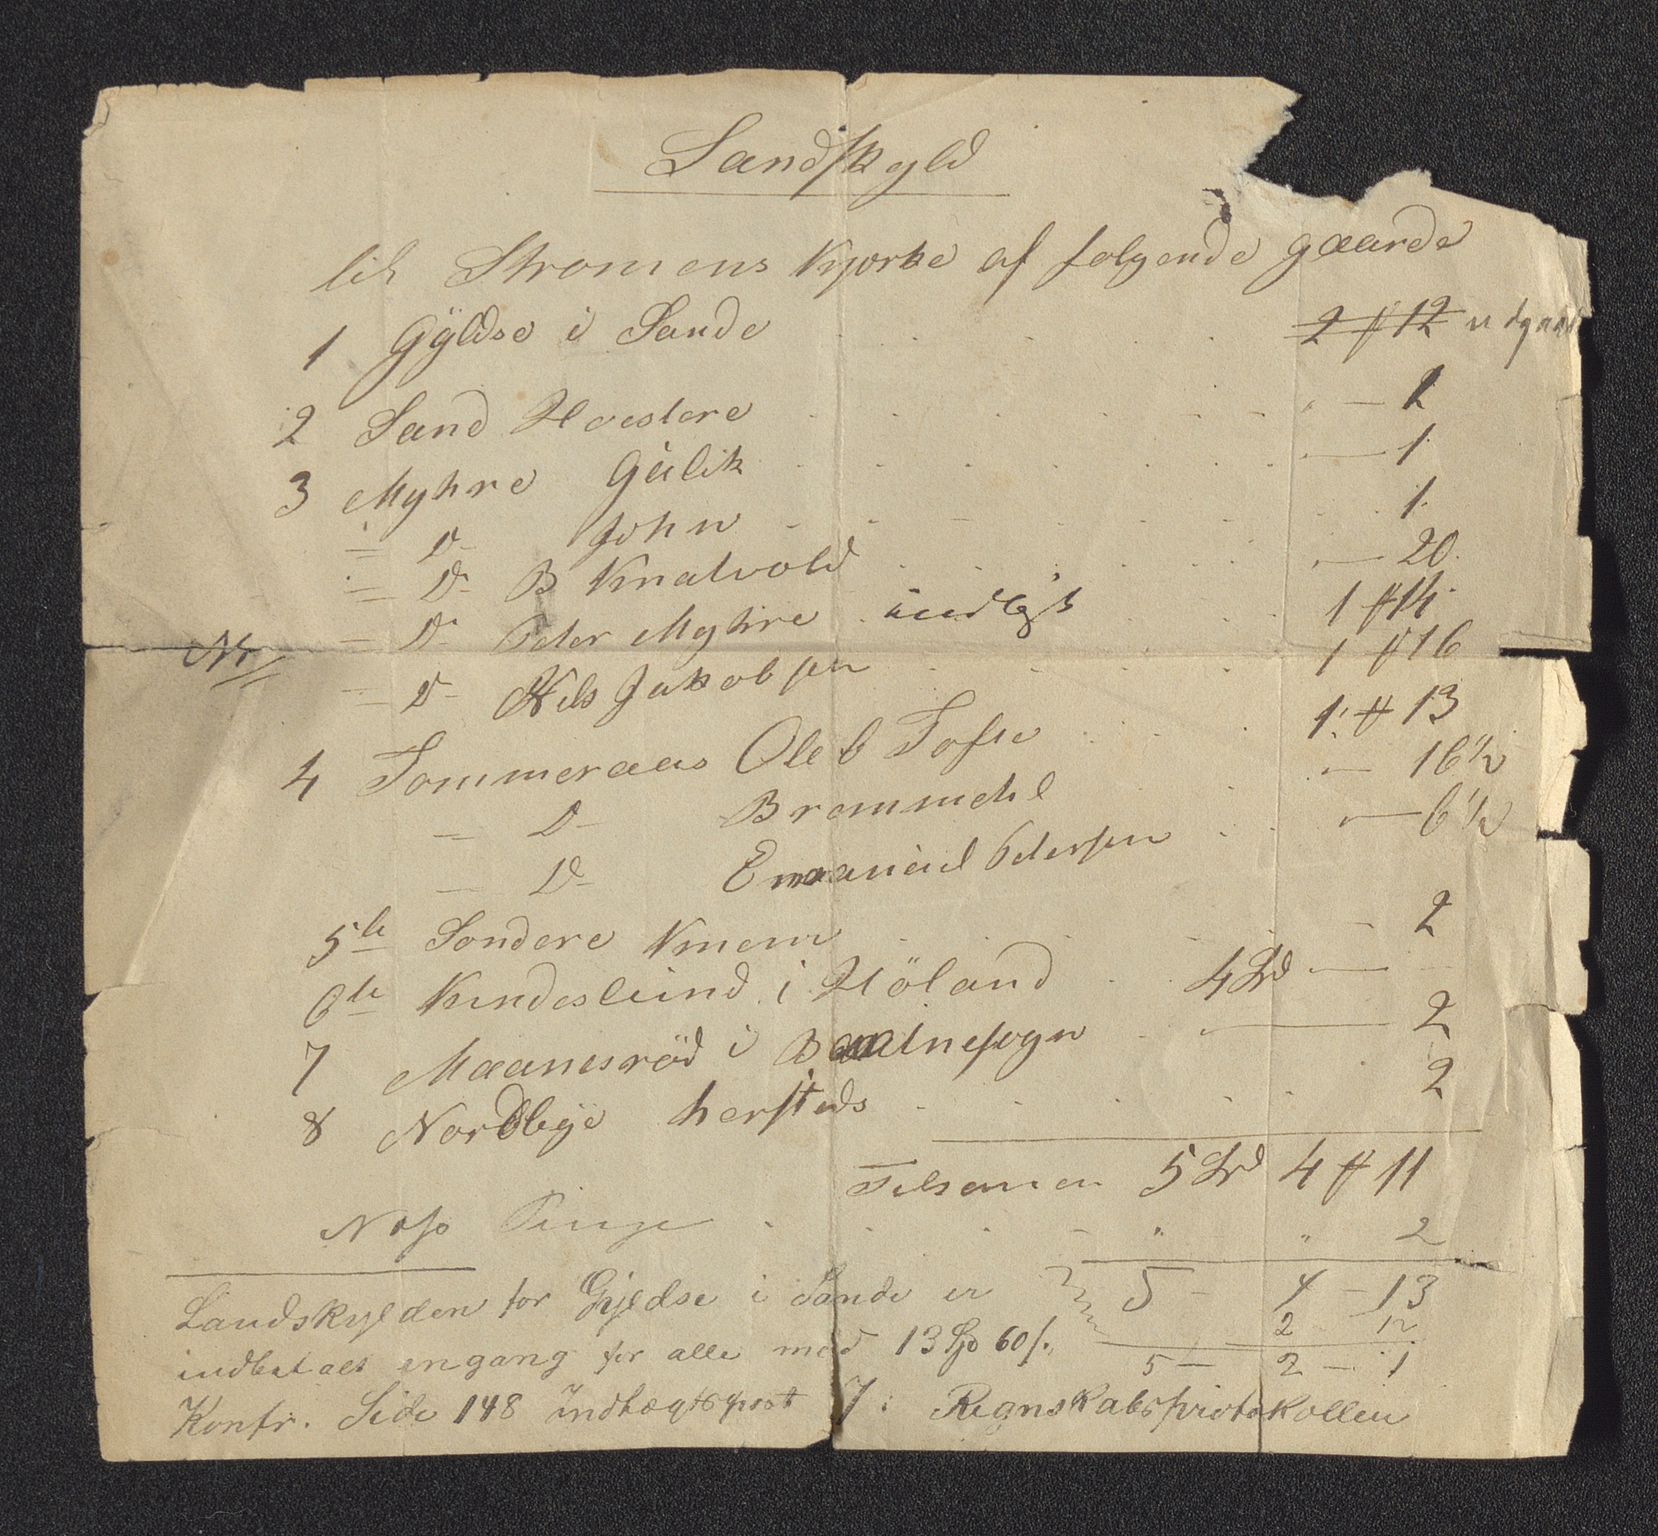 Landskyld
til Stromens Kjorke af folgende gaarde
1 Gÿldse i Sande 2 # 12 udgaar
2 Sand Hoestere - 2
3 Myhre Gulik - 1
= D- John 1
= D- B Knatvold - 20
Nr = D- Peder Myhre indlgst 1 # 14
= D- Nils Jakobsen 1 # 16
4 Tommeraas Ole b Tofte 1 # 13
= D- Bremmehl - 16 1/2
- D- Emanuel Pedersen - 6 1/2
5te Sondere Knem - 2
6te Kundeslund i Höland 4 Ld -
7 Maanesröd i Baatnesogn - 2
8 Nordbye hersteds 2
Tilsamen 5 Ld 4 # 11
Nøss " " 2
Landskylden for Gyldse i Sande er 5 - 4 - 13
2 12
indbetalt engang for alle med 13 Spd 60 s. 5 - 2 - 1
Konfr. Side 148 Indtægtspost 7 i Regnskabsprotokollen